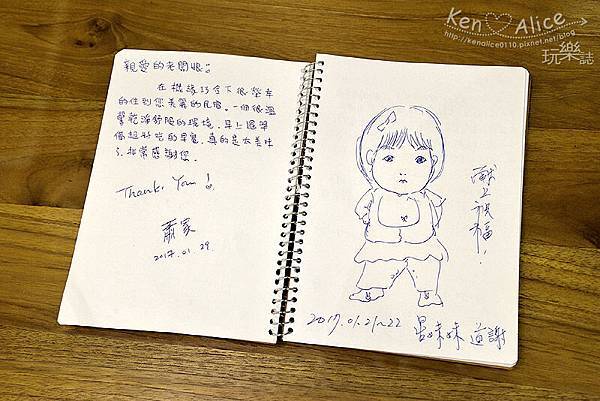 Ken♡Alice
http://kenalice0110.pixnet.net/blog
玩樂誌
親愛的老闆娘:
在機緣巧合下很幸運
的住到您美麗的民宿。一個很溫
馨乾淨舒適的環境,早上還準
備超好吃的早餐,真的是太美味
了,非常感謝您。
Thank You!
蕭家
2017.01.29.
獻上祝福!
2017.01.21~22
妹妹 道謝